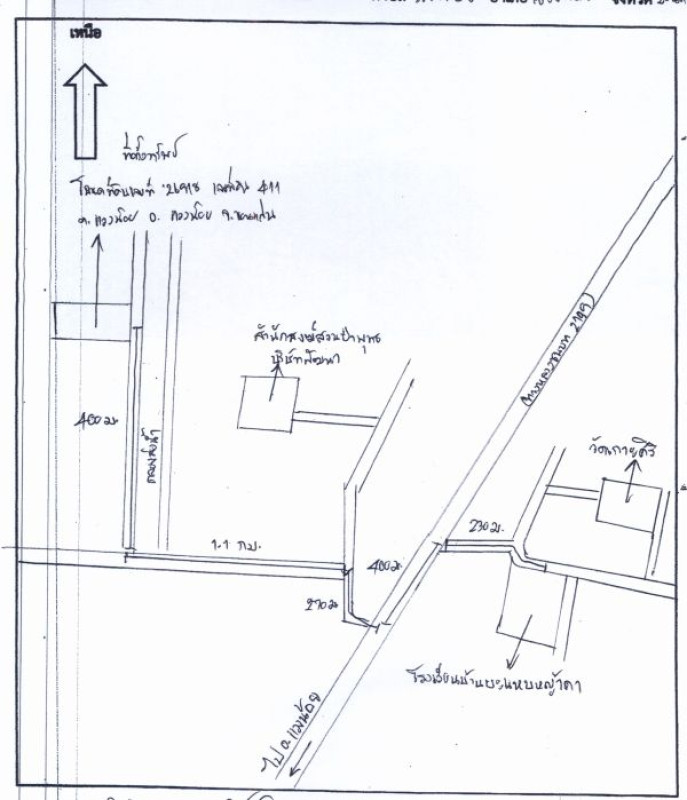 เหนือ
ที่ตั้งทรัพย์
โฉนดที่ดินเลขที่ 21918 เลขที่ดิน 411
ต. แวงน้อย อ. แวงน้อย จ.ขอนแก่น
สำนักสงฆ์สวนป่าพุทธ
บริษัทพัฒนา
(ทางหลวงชนบท 2199)
400 ม.
คลองส่งน้ำ
วัด
230 ม.
1.1 กม.
400 ม.
270 ม.
โรงเรียนบ้านยะแหบหญ้าคา
ไป อ.แวงน้อย